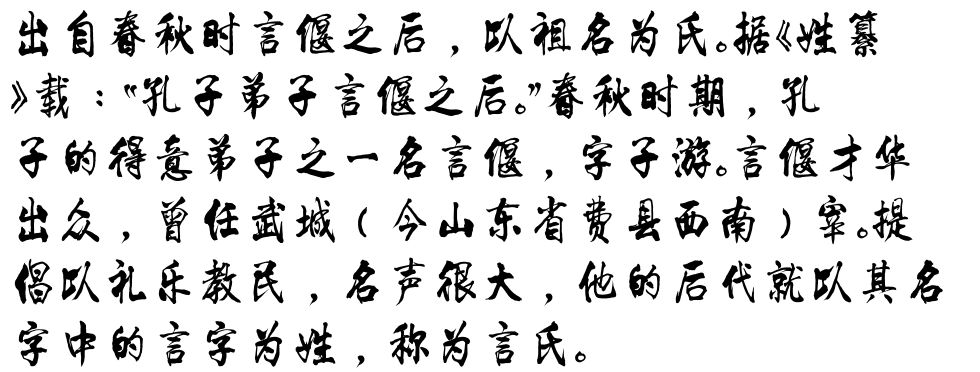 出自春秋时言偃之后，以祖名为氏。据《姓纂
》载：“孔子弟子言偃之后。”春秋时期，孔
子的得意弟子之一名言偃，字子游。言偃才华
出众，曾任武城（今山东省费县西南）宰。提
倡以礼乐教民，名声很大，他的后代就以其名
字中的言字为姓，称为言氏。